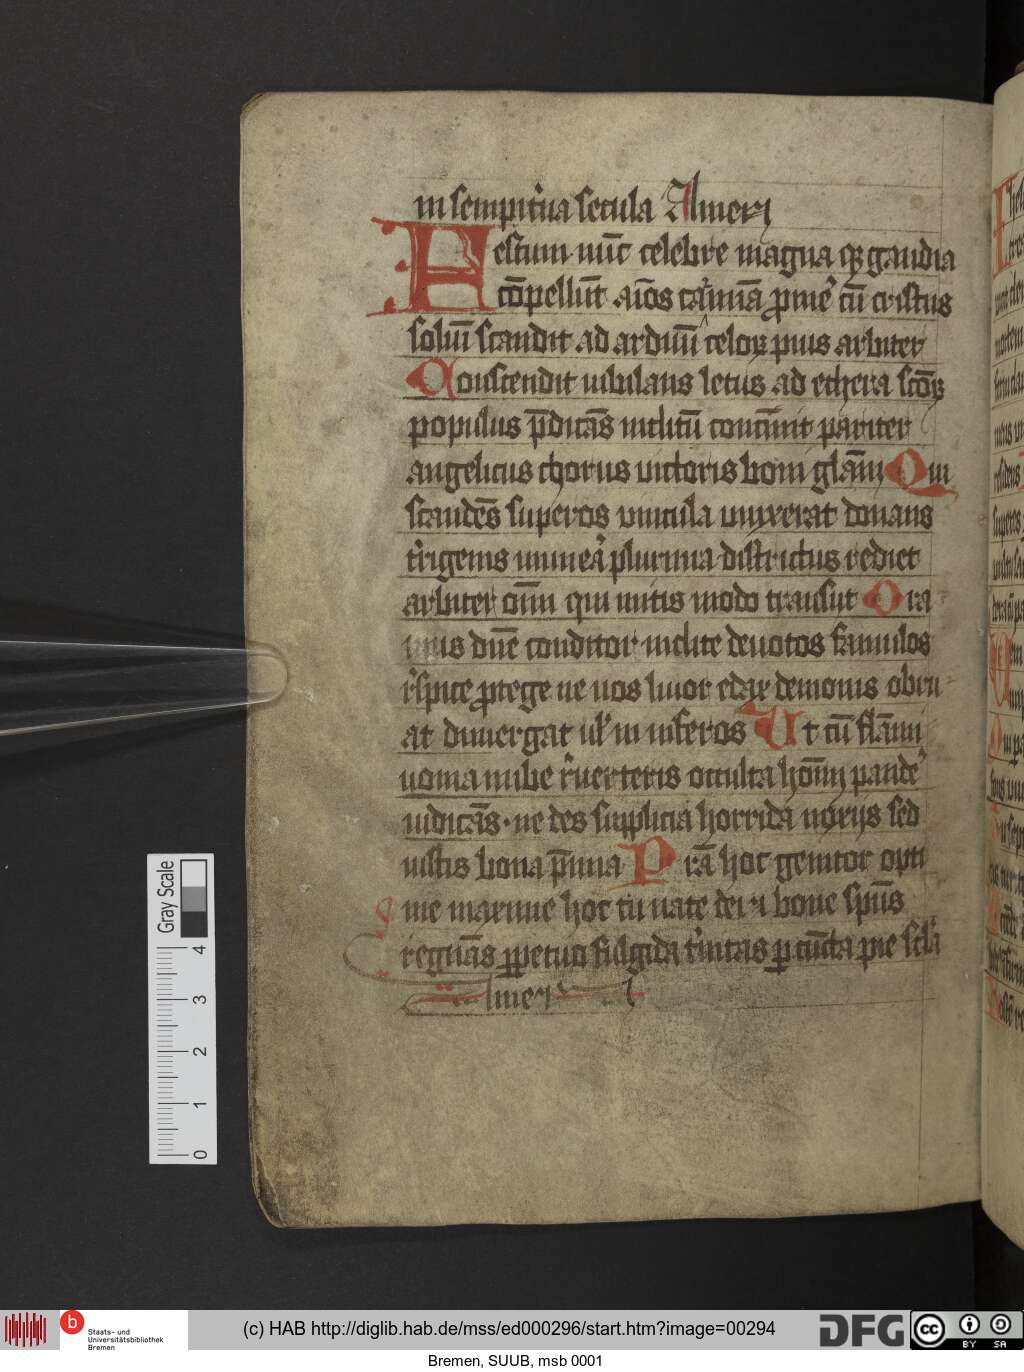 in sempit'na secula Amen
Festum nūc celebre magna q gaudia
cōpellūt aīos ca'mīa ꝓme' cū cristus
soliū scandit ad arduū celoꝝ pius arbiter
Conscendit iubilans letus ad ethera scōꝝ
populus p̄dicās inclitū concinit pariter
angelicus chorus victoris boni glām Qui
scandēs superos vincula vinxerat donans
t'rigenis munea' plurima districtus rediet
arbiter oīm qui mitis modo transiit Ora
mus dn̄e conditor inclite deuotos famulos
r'spice ꝓtege ne nos liuor edax demonis obru
at dimergat ul' in inferos Ut cū flāmi
uoma nube r'uerteris occulta hoīm pande'
iudicās · ne des suplicia horrida noxijs sed
iustis bona p̄mia Prā hoc genitor opti
me maxime hoc tu nate dei ⁊ bone sp̄us
regnās ꝑpetuo fulgida t'initas ꝑ cūcta pie sc̄la
Amen
Gray Scale
4
3
2
1
0
b
Staats- und
Universitätsbibliothek
Bremen
(c) HAB http://diglib.hab.de/mss/ed000296/start.htm?image=00294
DFG
cc
BY SA
Bremen, SUUB, msb 0001